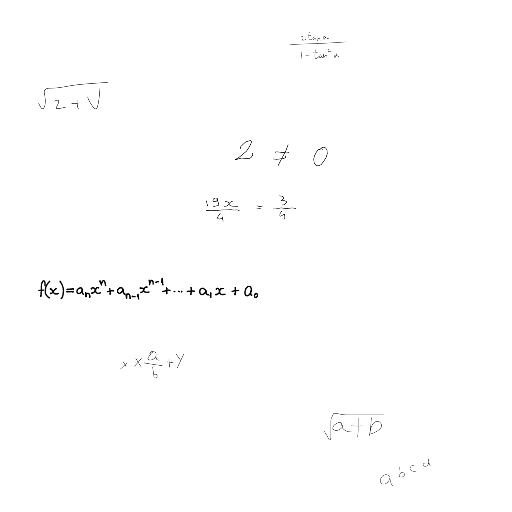 \frac{2 \tan x}{1 - \tan^2 x}
\sqrt{2 + \sqrt{}}
2 ≠ 0
\frac{19x}{4} = \frac{3}{4}
f(x) = a_n x^n + a_{n-1} x^{n-1} + ... + a_1 x + a_0
x x \frac{a}{b} + y
\sqrt{a + b}
a^{b^{c^{d}}}